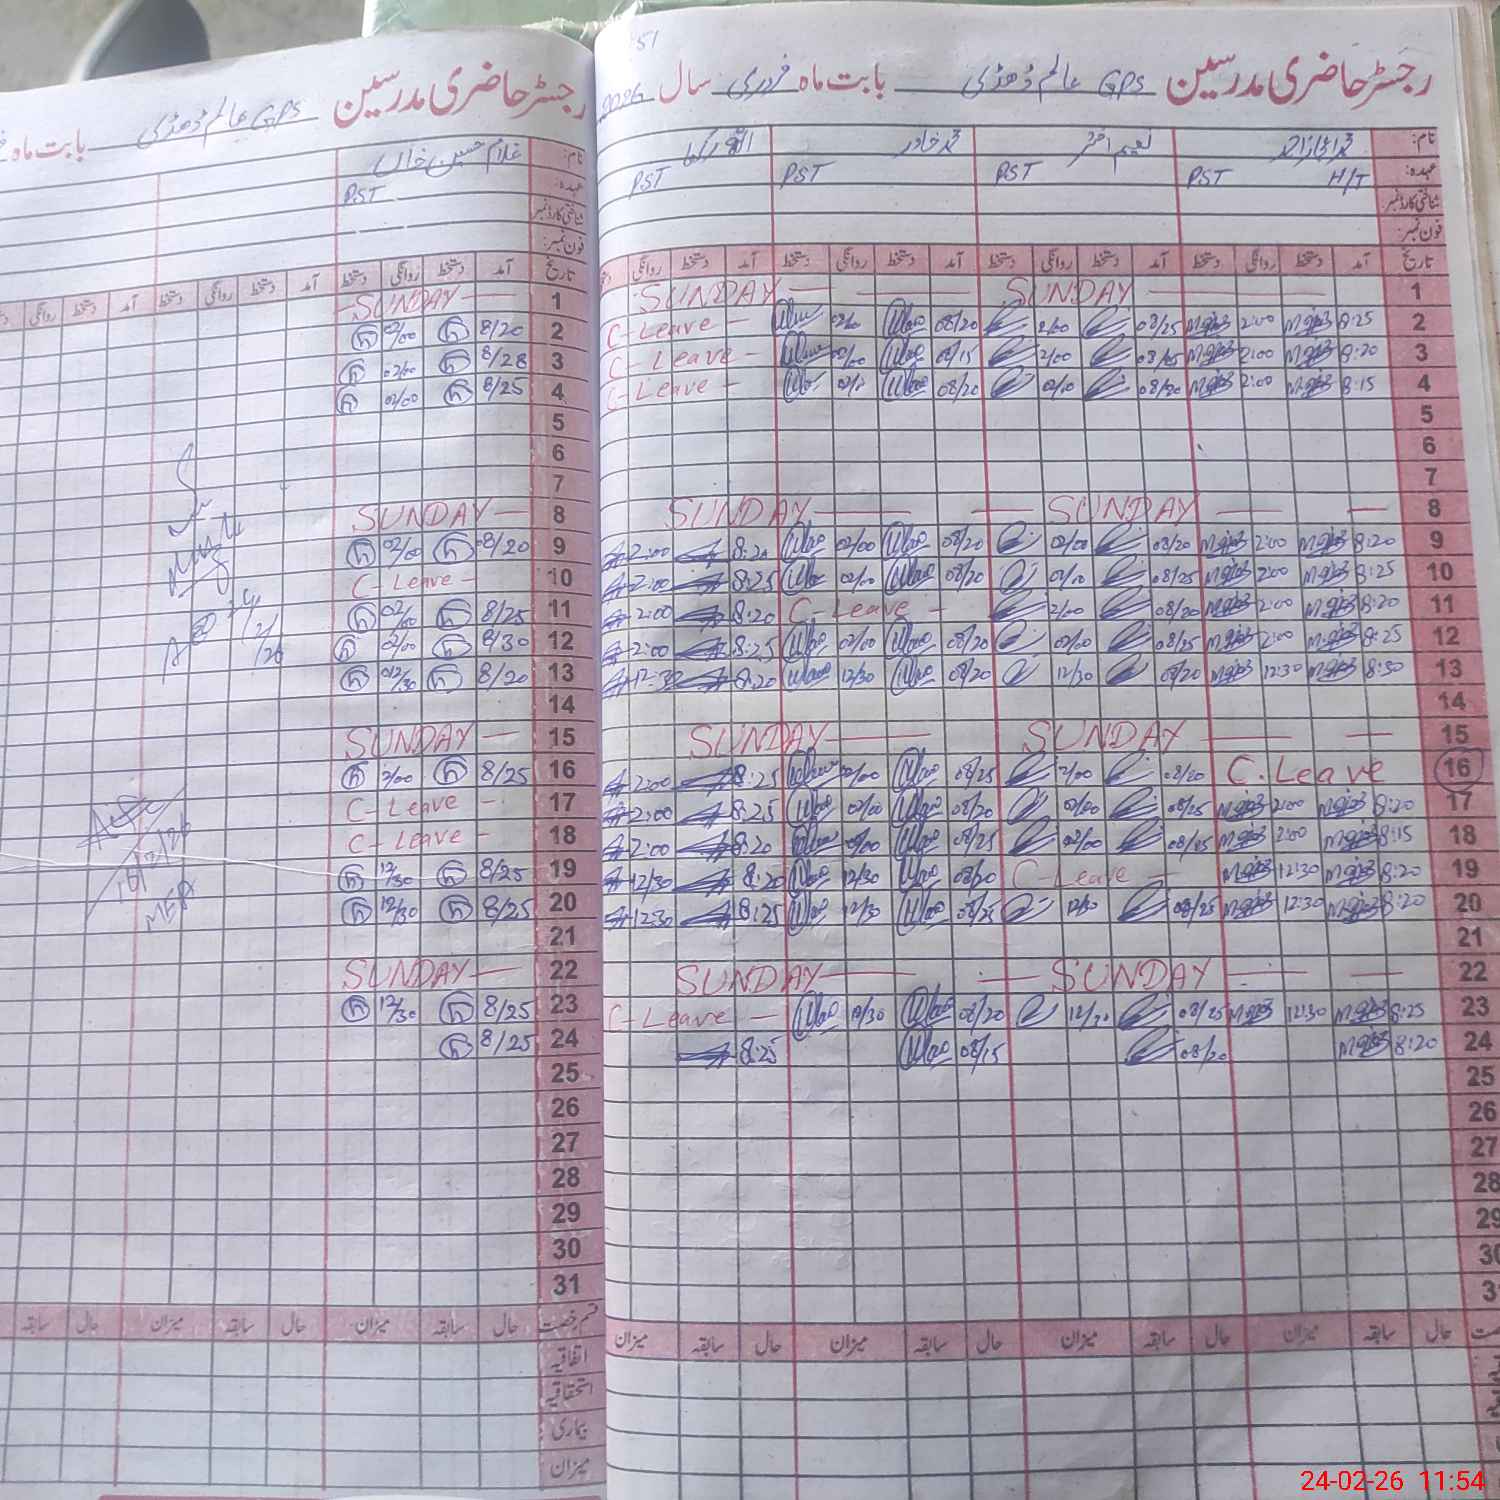 51
رجسٹر حاضری مدرسین GPS عالم ڈھڈی بابت ماہ فروری سال 2026
نام:
عہدہ: H/T PST PST PST PST
شناختی کارڈ نمبر:
فون نمبر:
تاریخ آمد دستخط روانگی دستخط آمد دستخط روانگی دستخط آمد دستخط روانگی دستخط آمد دستخط روانگی
1 SUNDAY SUNDAY
2 8:25 2:00 08/25 2/00 08/20 02/00 C-Leave
3 8:20 2:00 08/25 2/00 08/15 02/00 C-Leave
4 8:15 2:00 08/20 02/00 08/20 C-Leave
5
6
7
8 SUNDAY SUNDAY
9 8:20 2:00 08/20 02/00 08/20 02/00 8:20 2:00
10 8:25 2:00 08/25 02/00 08/20 02/00 8:25 2:00
11 8:20 2:00 08/20 2/00 C-Leave 8:20 2:00
12 8:25 2:00 08/25 02/00 08/20 02/00 8:25 2:00
13 8:30 12:30 08/20 12/30 08/20 12/30 8:20 12:30
14
15 SUNDAY SUNDAY
16 C.Leave 08/20 2/00 08/25 02/00 8:25 2:00
17 8:20 2:00 08/25 02/00 08/20 02/00 8:25 2:00
18 8:15 2:00 08/25 02/00 08/25 02/00 8:20 2:00
19 8:20 12:30 C-Leave 08/20 12/30 8:20 12/30
20 8:20 12:30 08/25 12/30 08/25 12/30 8:25 12:30
21
22 SUNDAY SUNDAY
23 8:25 12:30 08/25 12/30 08/20 12/30 C-Leave
24 8:20 08/20 08/15 8:25
25
26
27
28
29
30
3
حال سابقہ میزان حال سابقہ میزان حال سابقہ میزان
رجسٹر حاضری مدرسین GPS عالم ڈھڈی بابت ماہ
نام: غلام حسین خان
عہدہ: PST
شناختی کارڈ نمبر:
فون نمبر:
تاریخ آمد دستخط روانگی دستخط آمد دستخط روانگی دستخط آمد دستخط روانگی
1 SUNDAY
2 8/20 02/00
3 8/28 02/00
4 8/25 02/00
5
6
7
8 SUNDAY
9 8/20 02/00
10 C-Leave
11 8/25 02/00
12 8/30 02/00
13 8/20 012/30
14
15 SUNDAY
16 8/25 2/00
17 C-Leave
18 C-Leave
19 8/25 12/30
20 8/25 12/30
21
22 SUNDAY
23 8/25 12/30
24 8/25
25
26
27
28
29
30
31
قسم رخصت حال سابقہ میزان حال سابقہ میزان حال سابقہ
اتفاقیہ
استحقاقیہ
بیماری
میزان
24-02-26 11:54